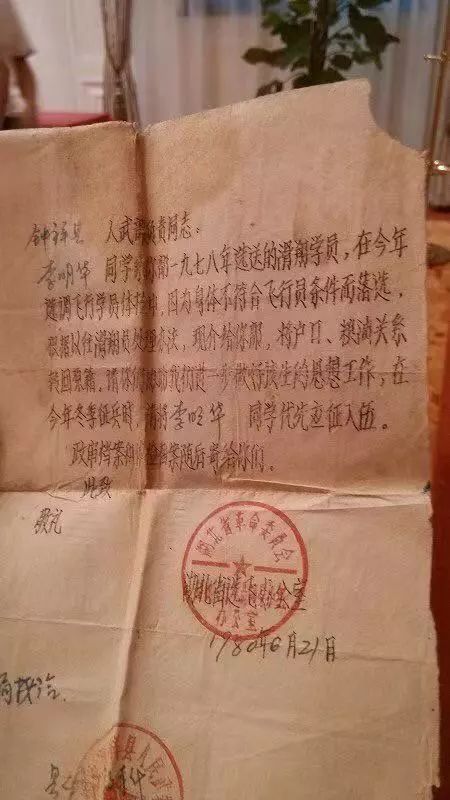 钟祥县 人武部负责同志:
李明华 同学系你部一九七八年选送的滑翔学员,在今年
选调飞行学员体检中,因为身体不符合飞行员条件而落选,
根据以往滑翔员处理办法,现介给你部,将户口、粮油关系
转回原籍。请你们 我们进一步做好该生的思想工作,在
今年冬季征兵时,请将 李明华 同学优先应征入伍。
政审档案和 档案随后寄给你们。
此致
敬礼
湖北省革命委员会
办公室
湖北省选 办公室
1980年6月21日
县人民武